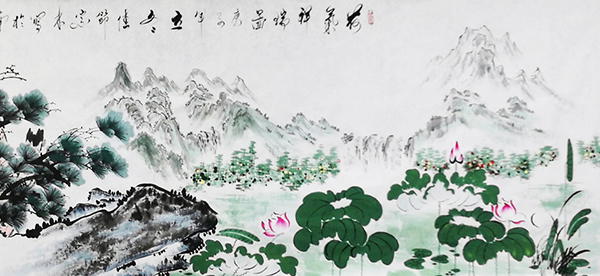 荷氣祥瑞圖庚子年立冬佳節寫於